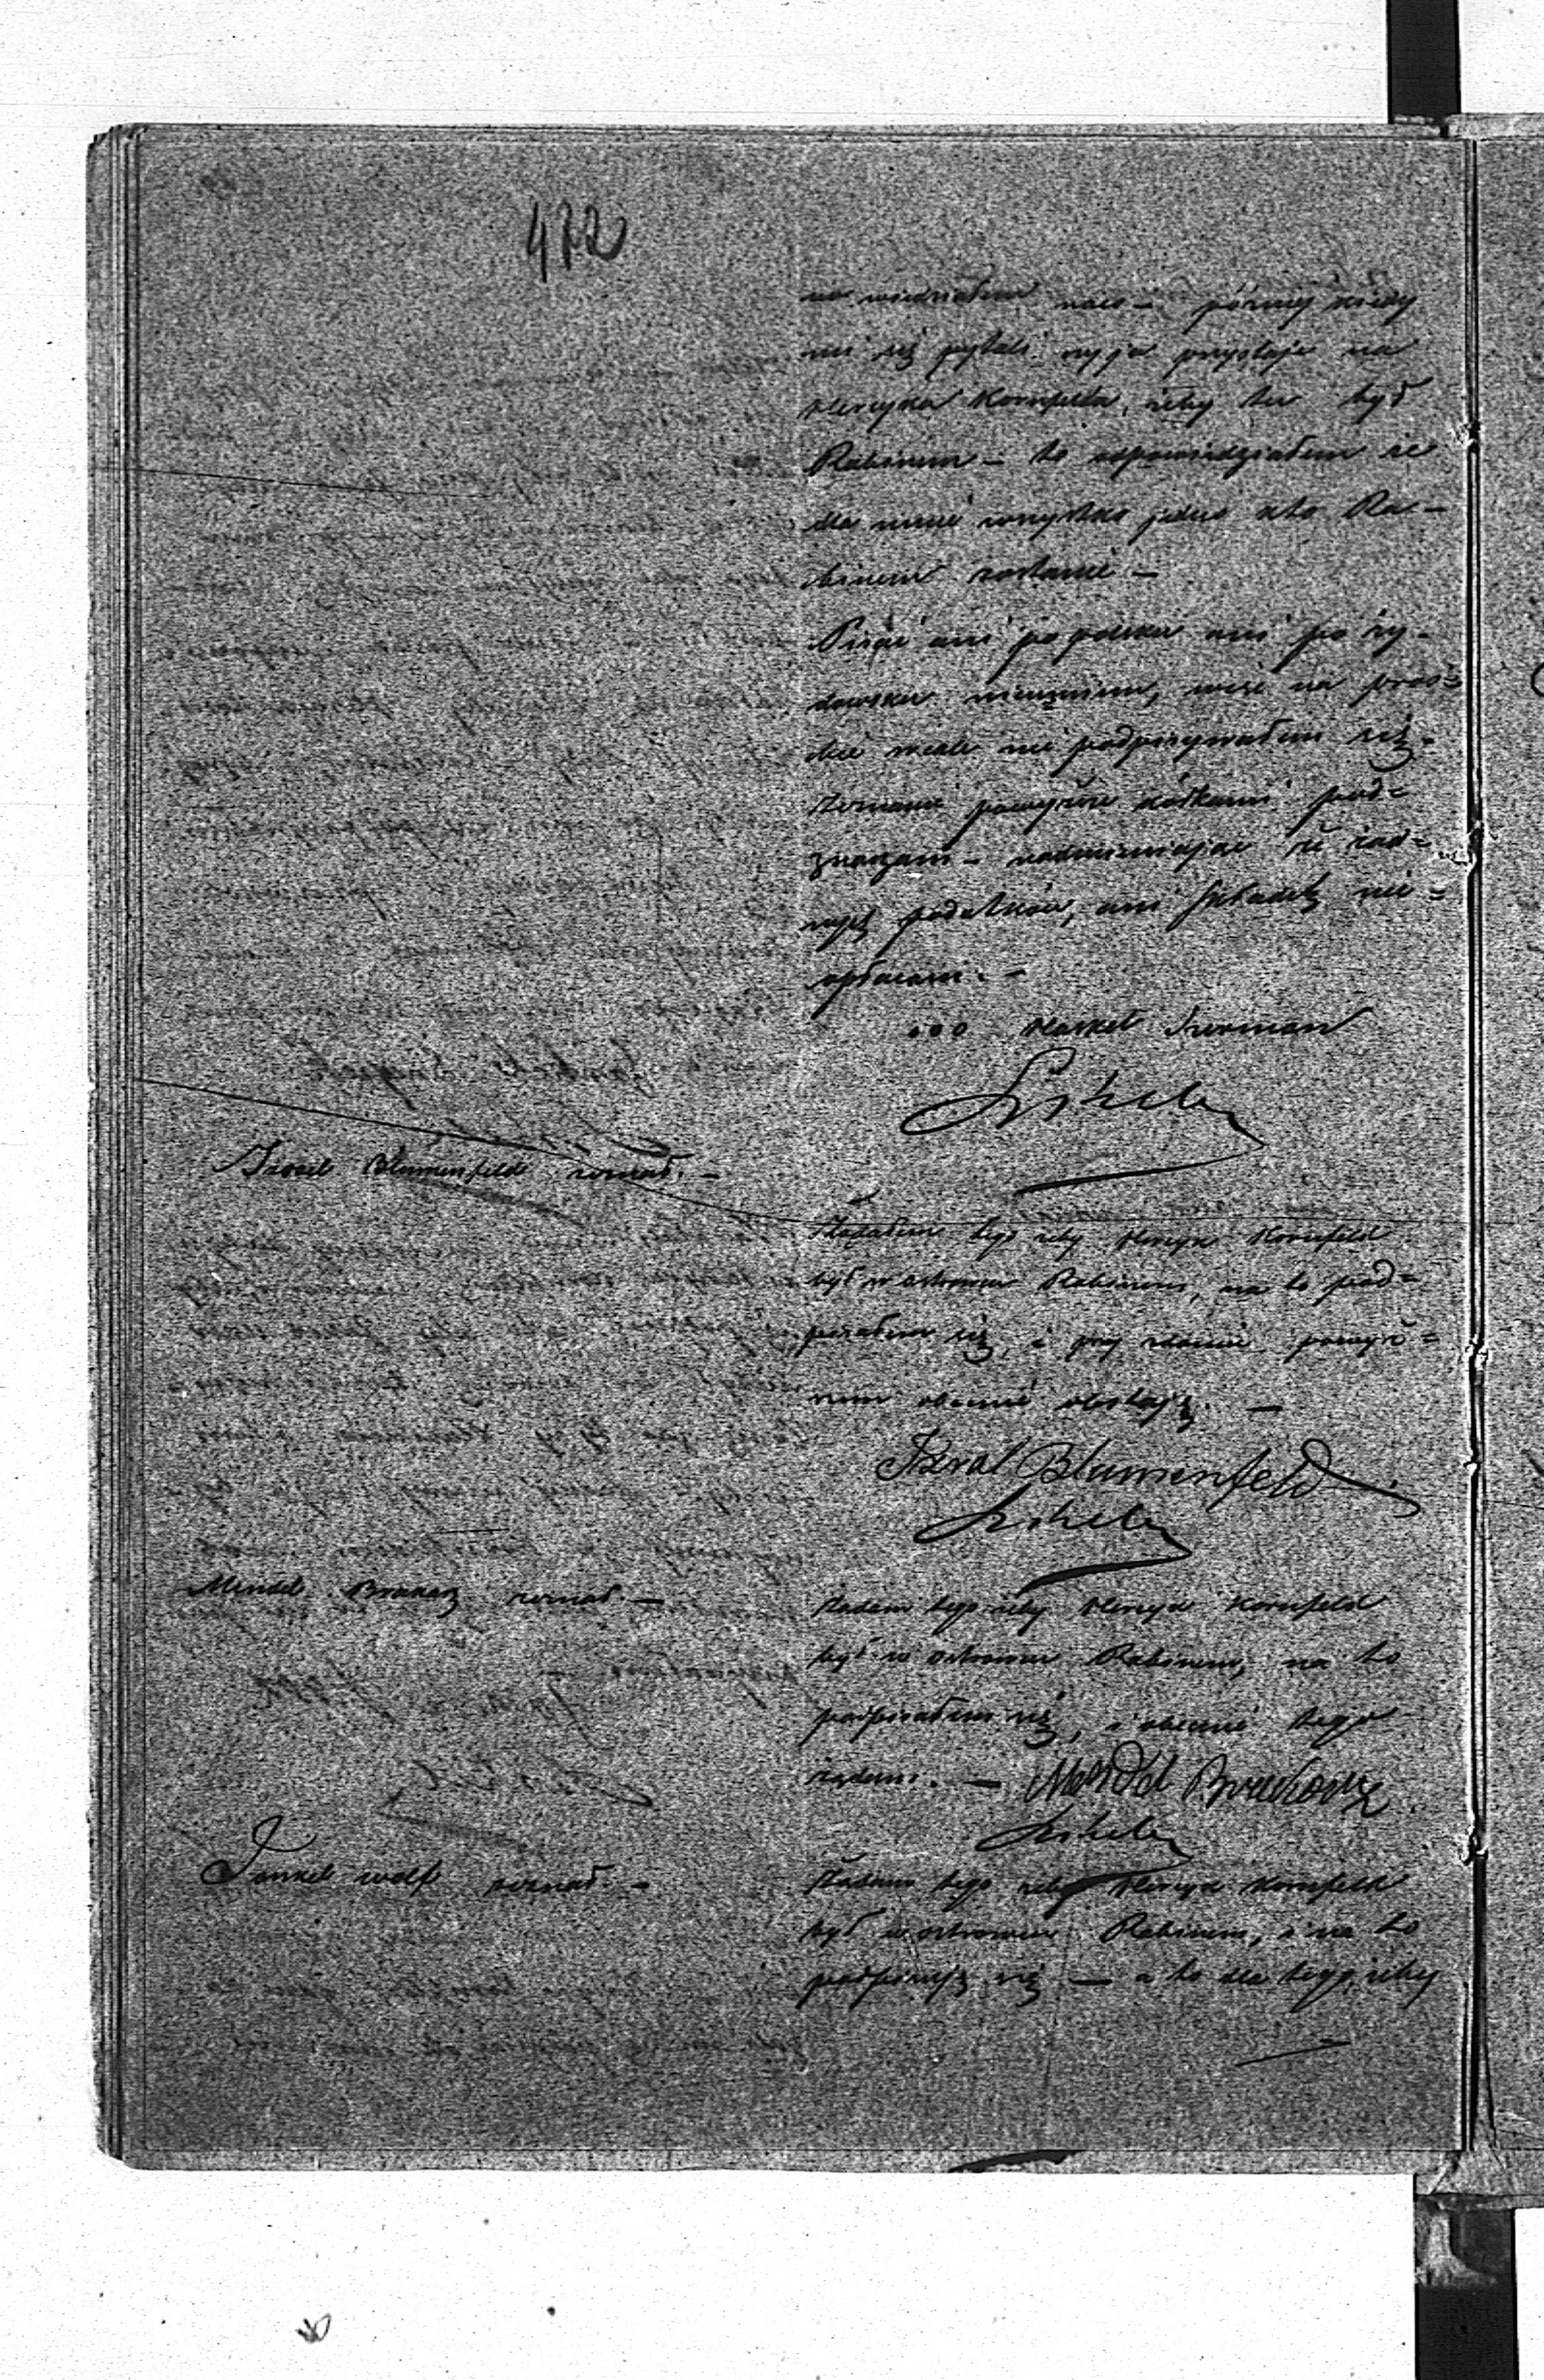 472
nie wiedziałem — później kiedy
mi się pytali czy ja przystaję na
Henryka Kornfelda, żeby tu był
Rabinem — to odpowiedziałem że
dla mnie wszystko jedno kto Ra—
binem zostanie —
Pisać ani po polsku ani po ży—
dowsku nieumiem, więc na proś=
bie wcale nie podpisywałem się —
Zeznanie powyższe kółkami pod=
znaczam — nadmieniając że żad=
nych podatków, ani składek nie=
opłacam. —
ooo Haskel Surman
Izrael Blumenfeld zeznał. —
Żądałem tego żeby Henryk Kornfeld
był w Ostrowcu Rabinem, na to pod=
pisałem się, i przy zdaniu powyż=
szem obecnie obstaję. —
Izral Blumenfeld
Mendel zeznał. —
Żądam tego żeby Henryk Kornfeld
był w Ostrowcu Rabinem, na to
podpisałem się, i obecnie tego
żądam. — Mendel
Jankel Wolf zeznał. —
Żądam tego żeby Henryk Kornfeld
był w Ostrowcu Rabinem, i na to
podpisuję się — a to dla tego, żeby